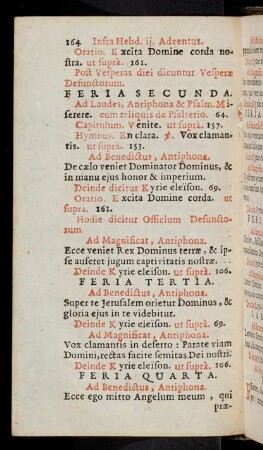 164 Infra Hebd. ij. Adventus.
Oratio. Excita Domine corda no-
stra. ut suprà. 161.
Post Vesperas diei dicuntur Vesperæ
Defunctorum.
FERIA SECUNDA.
Ad Laudes, Antiphona & Psalm. Mi-
serere. cum reliquis de Psalterio. 64.
Capitulum. Venite. ut suprà. 157.
Hymnus. En clara. ℣. Vox claman-
tis. ut suprà. 153.
Ad Benedictus, Antiphona.
De cælo veniet Dominator Dominus, &
in manu ejus honor & imperium.
Deinde dicitur Kyrie eleison. 69.
Oratio. Excita Domine corda. ut
supra. 161.
Hodie dicitur Officium Defuncto-
rum.
Ad Magnificat, Antiphona.
Ecce veniet Rex Dominus terræ, & ip-
se auferet jugum captivitatis nostræ.
Deinde Kyrie eleison. ut suprà. 106.
FERIA TERTIA.
Ad Benedictus, Antiphona.
Super te Jerusalem orietur Dominus, &
gloria ejus in te videbitur.
Deinde Kyrie eleison. ut suprà. 69.
Ad Magnificat, Antiphona.
Vox clamantis in deserto : Parate viam
Domini, rectas facite semitas Dei nostri.
Deinde Kyrie eleison. ut suprà. 106.
FERIA QUARTA.
Ad Benedictus, Antiphona.
Ecce ego mitto Angelum meum, qui
præ-